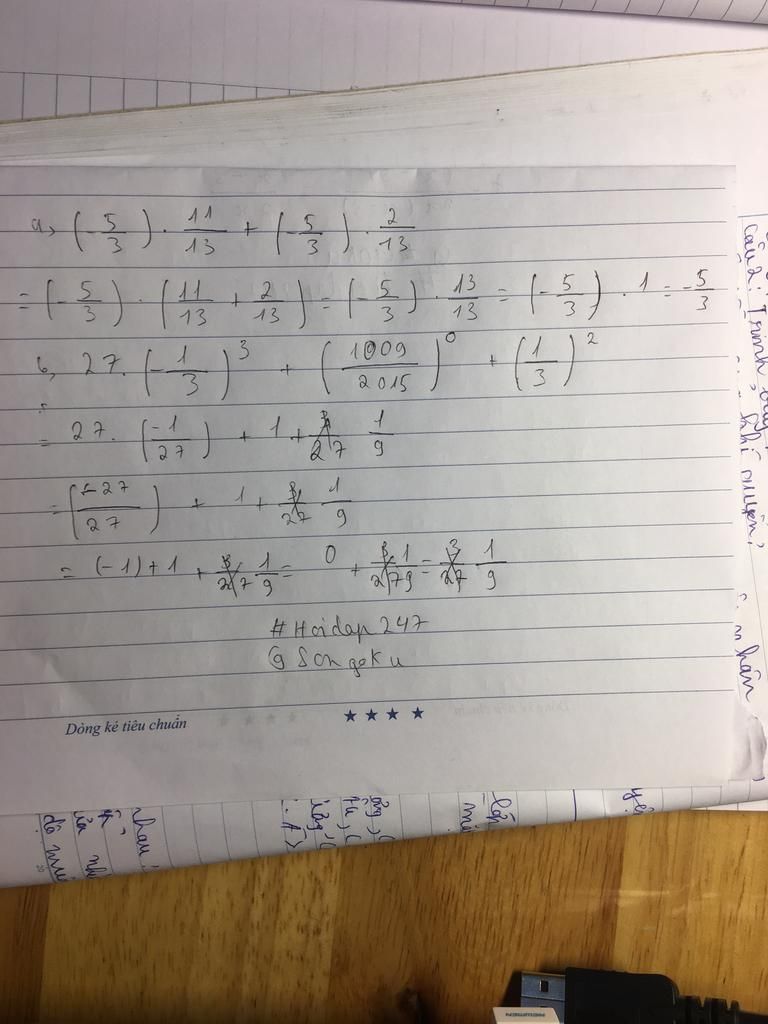 a, (-5/3) . 11/13 + (-5/3) . 2/13
= (-5/3) . (11/13 + 2/13) = (-5/3) . 13/13 = (-5/3) . 1 = -5/3
b, 27. (-1/3)^3 + (1009/2015)^0 + (1/3)^2
= 27. (-1/27) + 1 + 1/9
= (-27/27) + 1 + 1/9
= (-1) + 1 + 1/9 = 0 + 1/9 = 1/9
#Hoidap247
@Songoku
Dòng kẻ tiêu chuẩn ★ ★ ★ ★
Câu 2: Trình bày